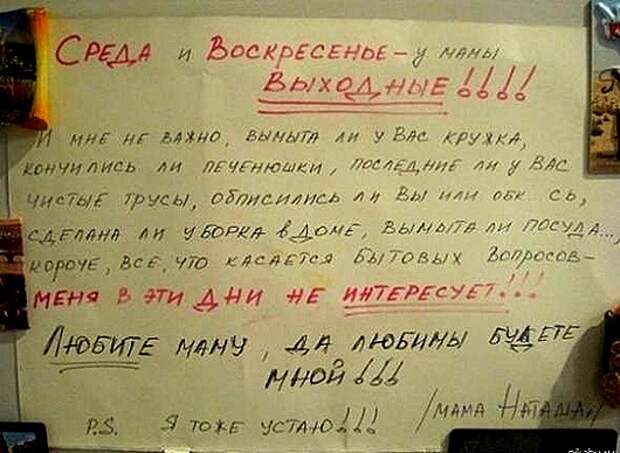 Среда и Воскресенье – у мамы
выходные!!!!
И мне не важно, вымыта ли у вас кружка,
кончились ли печенюшки, последние ли у вас
чистые трусы, описились ли вы или обк... сь,
сделана ли уборка в доме, вымыта ли посуда...,
короче, всё, что касается бытовых вопросов –
меня в эти дни не интересует!!!
Любите маму, да любимы будете
мной!!!
/мама Наташа/
P.S. Я тоже устаю!!!